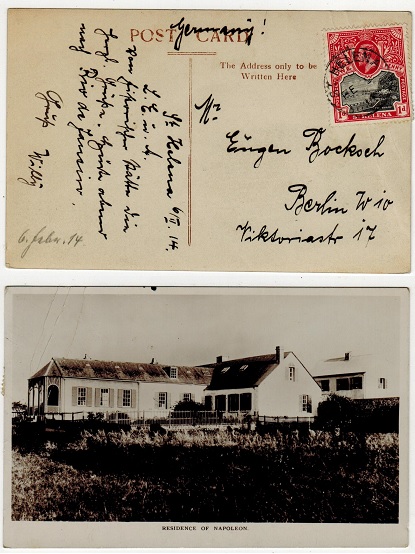 Germany!
POST CARD
The Address only to be
Written Here
ST HELENA
1d ST HELENA 1d
St Helena 6/II. 14.
von historischer Stätte die
Heute abend
Rio de Janeiro.
Gruß
Willy
6. Febr. 14
Mr.
Eugen Bocksch
Berlin W 10
Viktoriastr 17
RESIDENCE OF NAPOLEON.